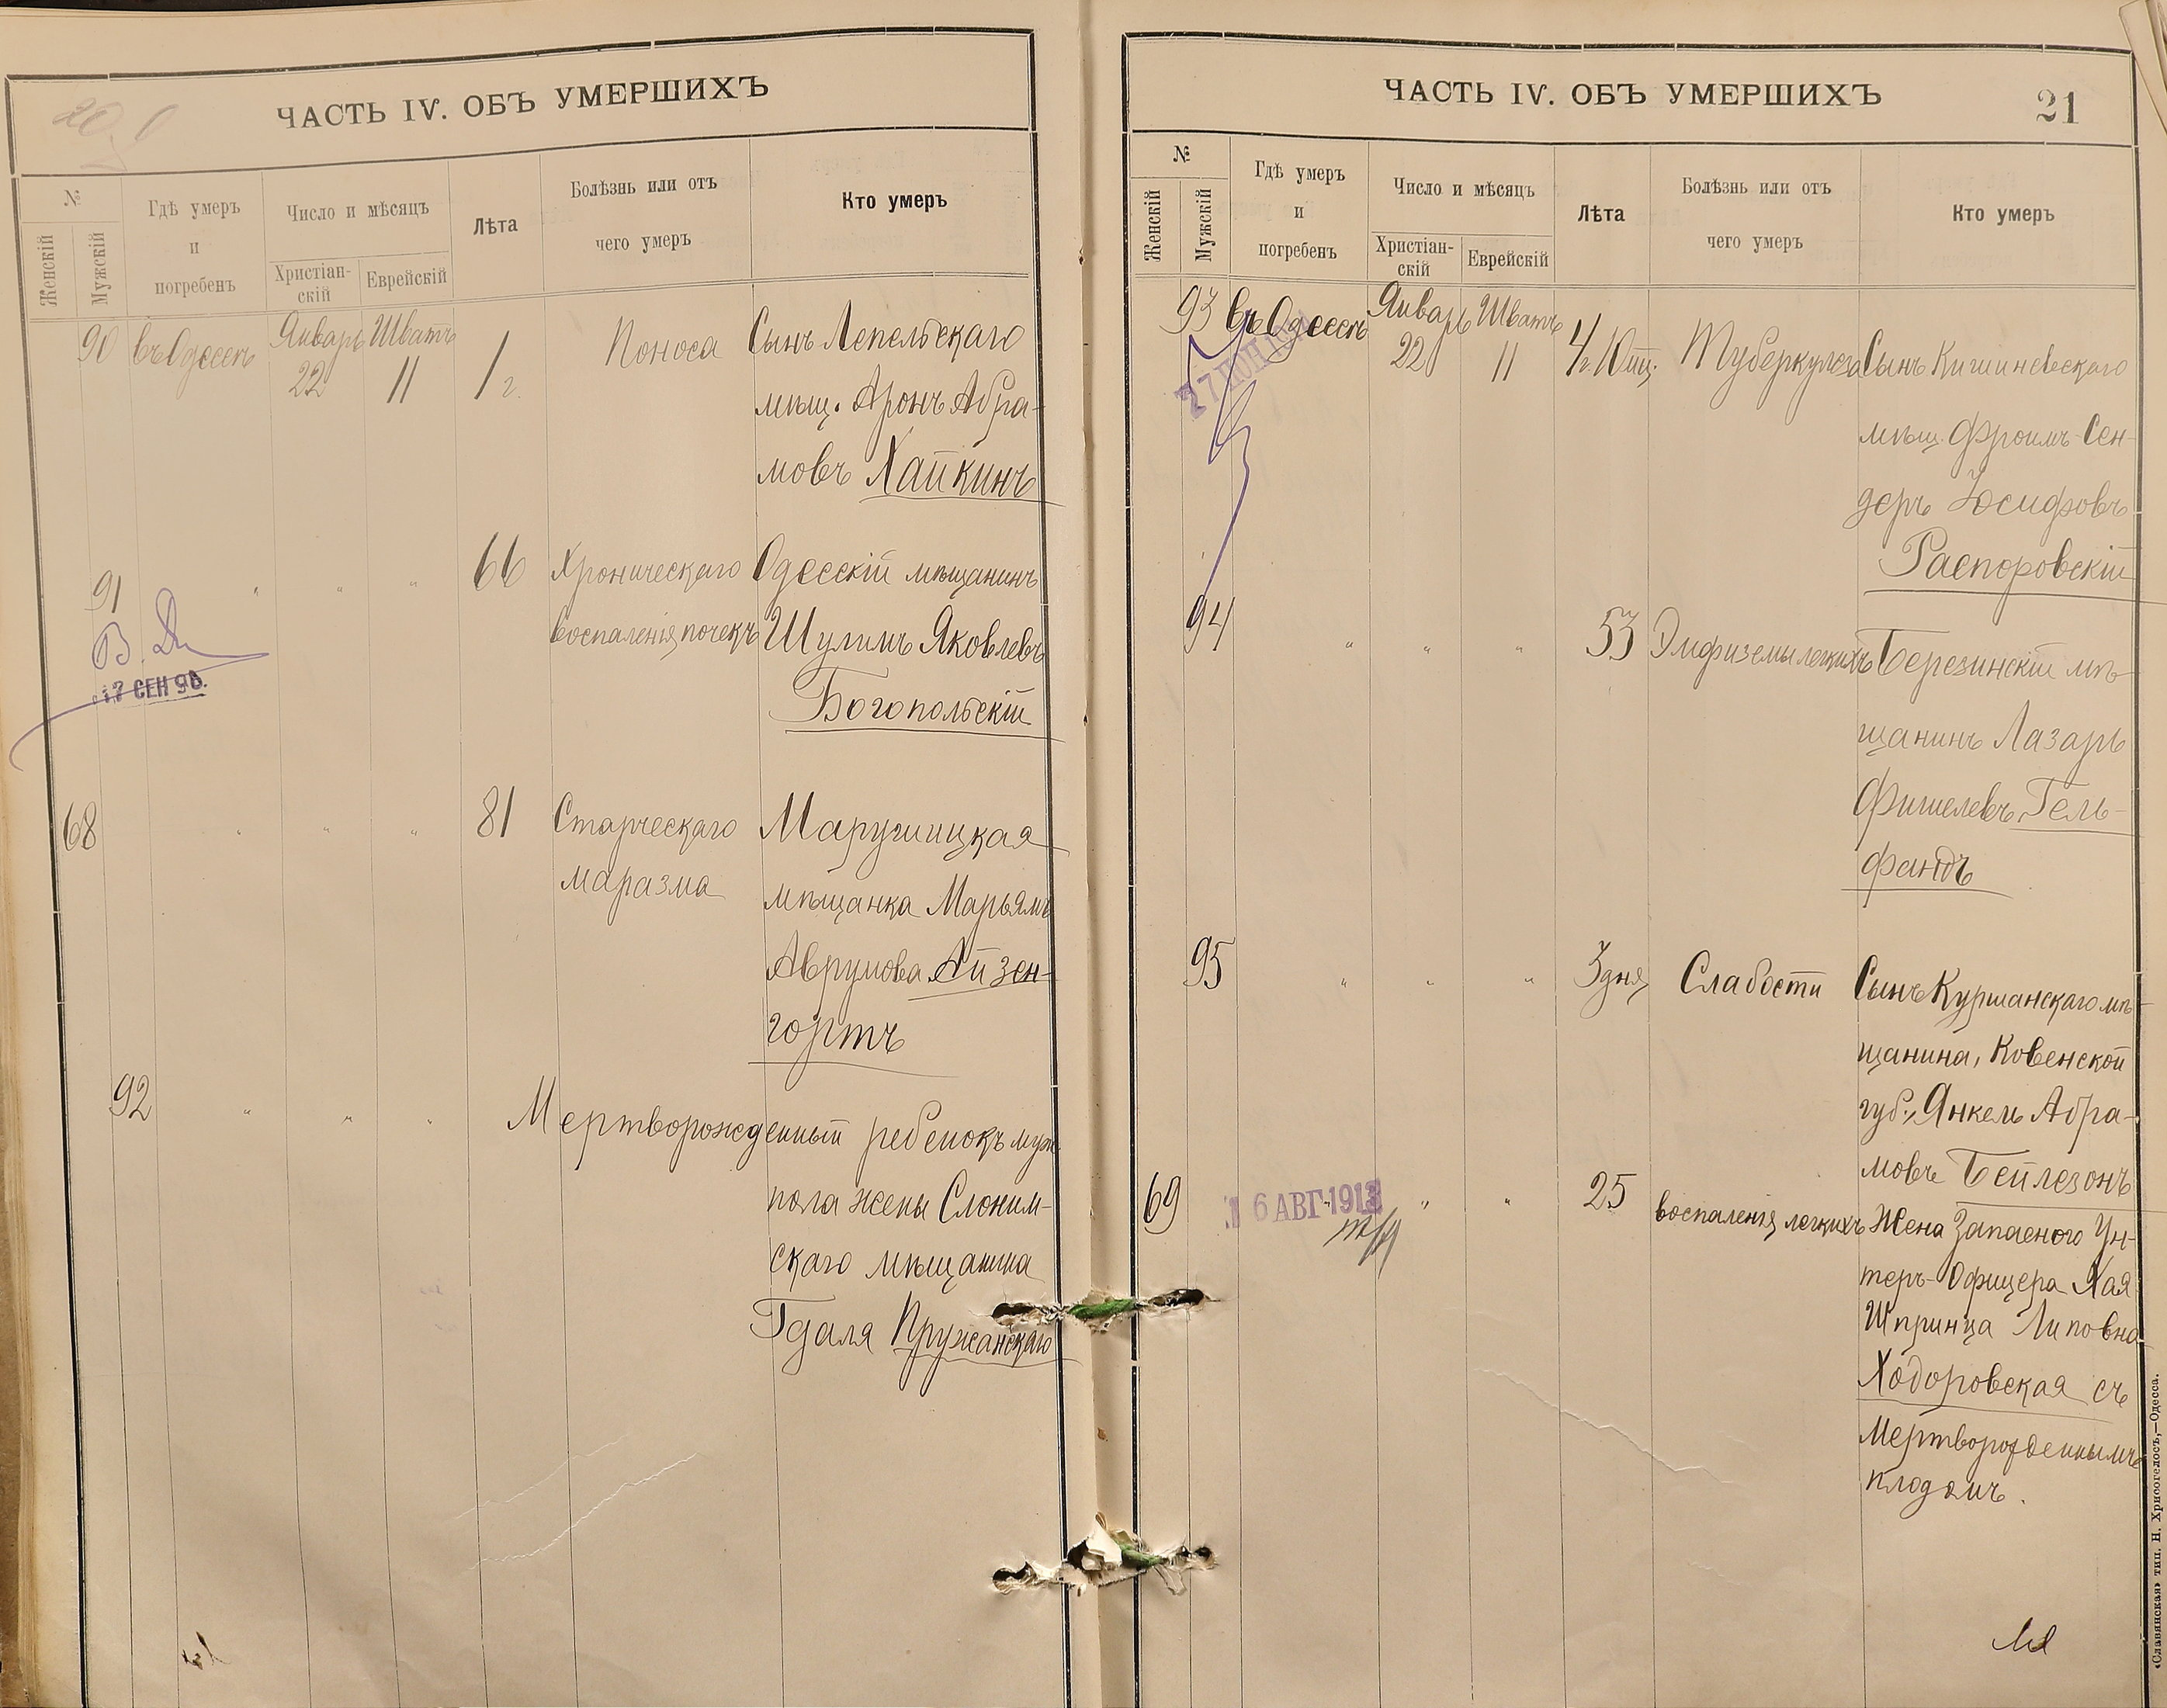 ЧАСТЬ IV. ОБЪ УМЕРШИХЪ
№
Женскій
Мужскій
Гдѣ умеръ
и
погребенъ
Число и мѣсяцъ
Христіан-
скій
Еврейскій
Лѣта
Болѣзнь или отъ
чего умеръ
Кто умеръ
90 въ Одессѣ Январь 22 Шватъ 11 1 г. Поноса Сынъ Лепельскаго
мѣщ. Аронъ Абра-
мовъ Хайкинъ
91 " " " 66 Хроническаго Одесскій мѣщанинъ
воспаленія почекъ Шулимъ Яковлевъ
Богопольскій
17 СЕН 90.
68 " " " 81 Старческаго Маружицкая
маразма мѣщанка Марьямъ
Аврумова Айзен-
гортъ
92 " " " Мертворожденный ребенокъ муж
пола жены Слоним-
скаго мѣщанина
Гдаля Пружанскаго
ЧАСТЬ IV. ОБЪ УМЕРШИХЪ
21
№
Женскій
Мужскій
Гдѣ умеръ
и
погребенъ
Число и мѣсяцъ
Христіан-
скій
Еврейскій
Лѣта
Болѣзнь или отъ
чего умеръ
Кто умеръ
93 въ Одессѣ Январь 22 Шватъ 11 4 г. 10 мц. Туберкулеза Сынъ Кишиневскаго
мѣщ. Фроимъ-Сен-
деръ Іосифовъ
Распоровскій
94 " " " 53 Эмфиземы легкихъ Березинскій мѣ-
щанинъ Лазарь
Фишелевъ Гель-
фандъ
95 " " " 3 дня Слабости Сынъ Куршанскаго мѣ-
щанина, Ковенской
губ., Янкель Абра-
мовъ Бейлезонъ
69 16 АВГ 1913 " " 25 воспаленія легкихъ Жена Запаснаго Ун-
теръ-Офицера Хая
Шпринца Липовна
Ходоровская съ
Мертворожденнымъ
плодомъ.
«Славянская» тип. Н. Хрисогелосъ,—Одесса.